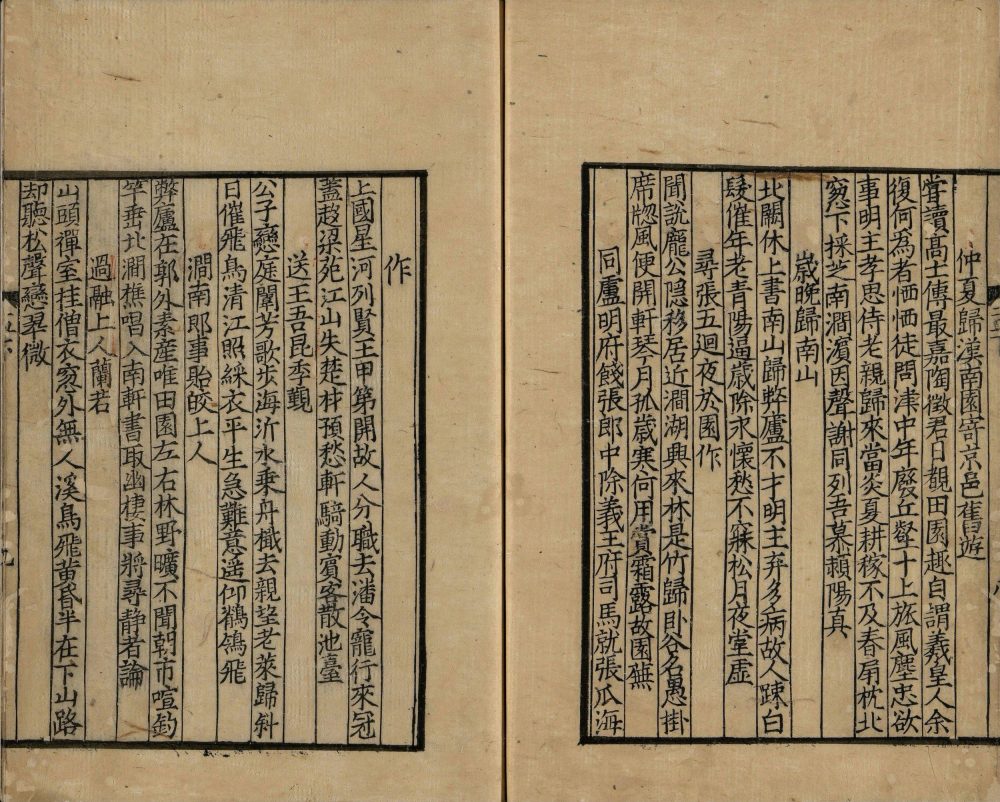 仲夏歸漢南園寄京邑舊遊
嘗讀髙士傳最嘉陶徵君日覩田園趣自謂羲皇人余
復何為者恓恓徒問津中年廢丘壑十上旅風塵忠欲
事明主孝思侍老親歸來當炎夏耕稼不及春扇枕北
窓下採芝南澗濱因聲謝同列吾慕潁陽真
歲晚歸南山
北闕休上書南山歸弊廬不才明主弃多病故人踈白
髮催年老青陽逼歲除永懷愁不寐松月夜堂虛
尋張五廻夜於園作
聞說龐公隠移居近澗湖興來林是竹歸卧谷名愚掛
席牕風便開軒琴月孤歲寒何用賞霜露故園蕪
同盧明府餞張郎中除義王府司馬就張瓜海
作
上國星河列賢王甲第開故人分職去潘令寵行來冠
蓋趍梁苑江山失楚材預愁軒騎動賓客散池臺
送王吾昆季覲
公子戀庭闈芳歌步海沂水乗丹檝去親望老萊歸斜
日催飛鳥清江照綵衣平生急難意遥仰鶺鴒飛
澗南郎事貽皎上人
弊廬在郭外素産唯田園左右林野曠不聞朝市喧釣
竿垂北澗樵唱入南軒書取幽棲事將尋静者論
過融上人蘭若
山頭禪室挂僧衣窓外無人溪鳥飛黄昏半在下山路
却聽松聲戀翠微